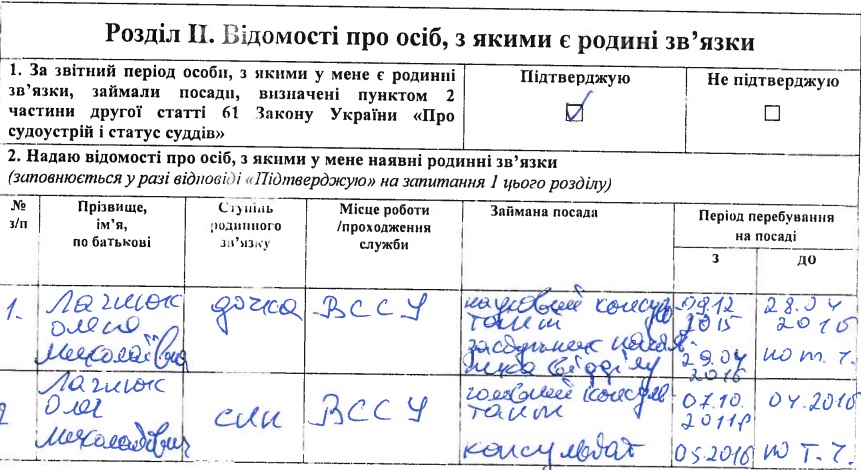 Розділ II. Відомості про осіб, з якими є родині зв'язки
1. За звітний період особи, з якими у мене є родинні
зв'язки, займали посади, визначені пунктом 2
частини другої статті 61 Закону України «Про
судоустрій і статус суддів»
Підтверджую
Не підтверджую
2. Надаю відомості про осіб, з якими у мене наявні родинні зв'язки
(заповнюється у разі відповіді «Підтверджую» на запитання 1 цього розділу)
№
з/п
Прізвище,
ім'я,
по батькові
Ступінь
родинного
зв'язку
Місце роботи
/проходження
служби
Займана посада
Період перебування
на посаді
з
до
1.
Лагнюк
Олена
Миколаївна
дочка
ВССУ
науковий консуль
тант
заступник началь
ника відділу
09.12
2015
29.04
2016
28.04
2016
по т. ч.
2
Лагнюк
Олег
Миколайович
син
ВССУ
головний консуль
тант
консультат
07.10.
2011р
05.2016
04.2016
по т. ч.